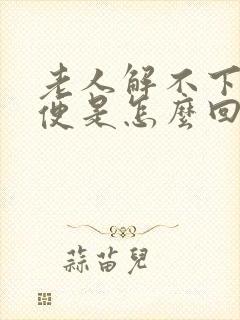 老人解不下
便是怎麼回
蒜苗兒